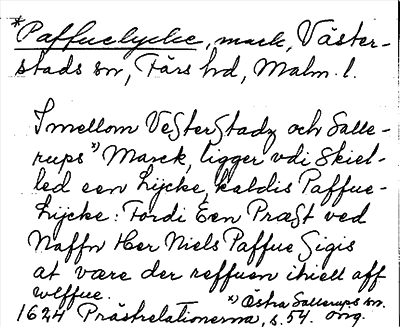 *Paffuelycke, mark, Väster-
stads sn, Färs hd, Malm. l.
Imellom Veßterstadz och Salle-
rups *) Marck, ligger vdi Skiel-
led een Lÿcke, kaldis Paffue-
Lÿcke: Fordi Een Præst ved
Naffn Her Niels Paffue Sigis
at være der reffuen ihiell aff
wlffue.
*) Östra Sallerups sn.
1624 Prästrelationerna, s. 54. orig.